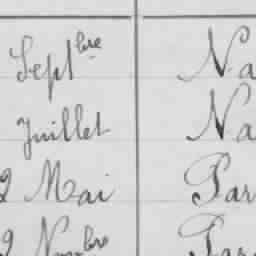 Septbre Na
Juillet Na
2 Mai Par
2 Novbre Par